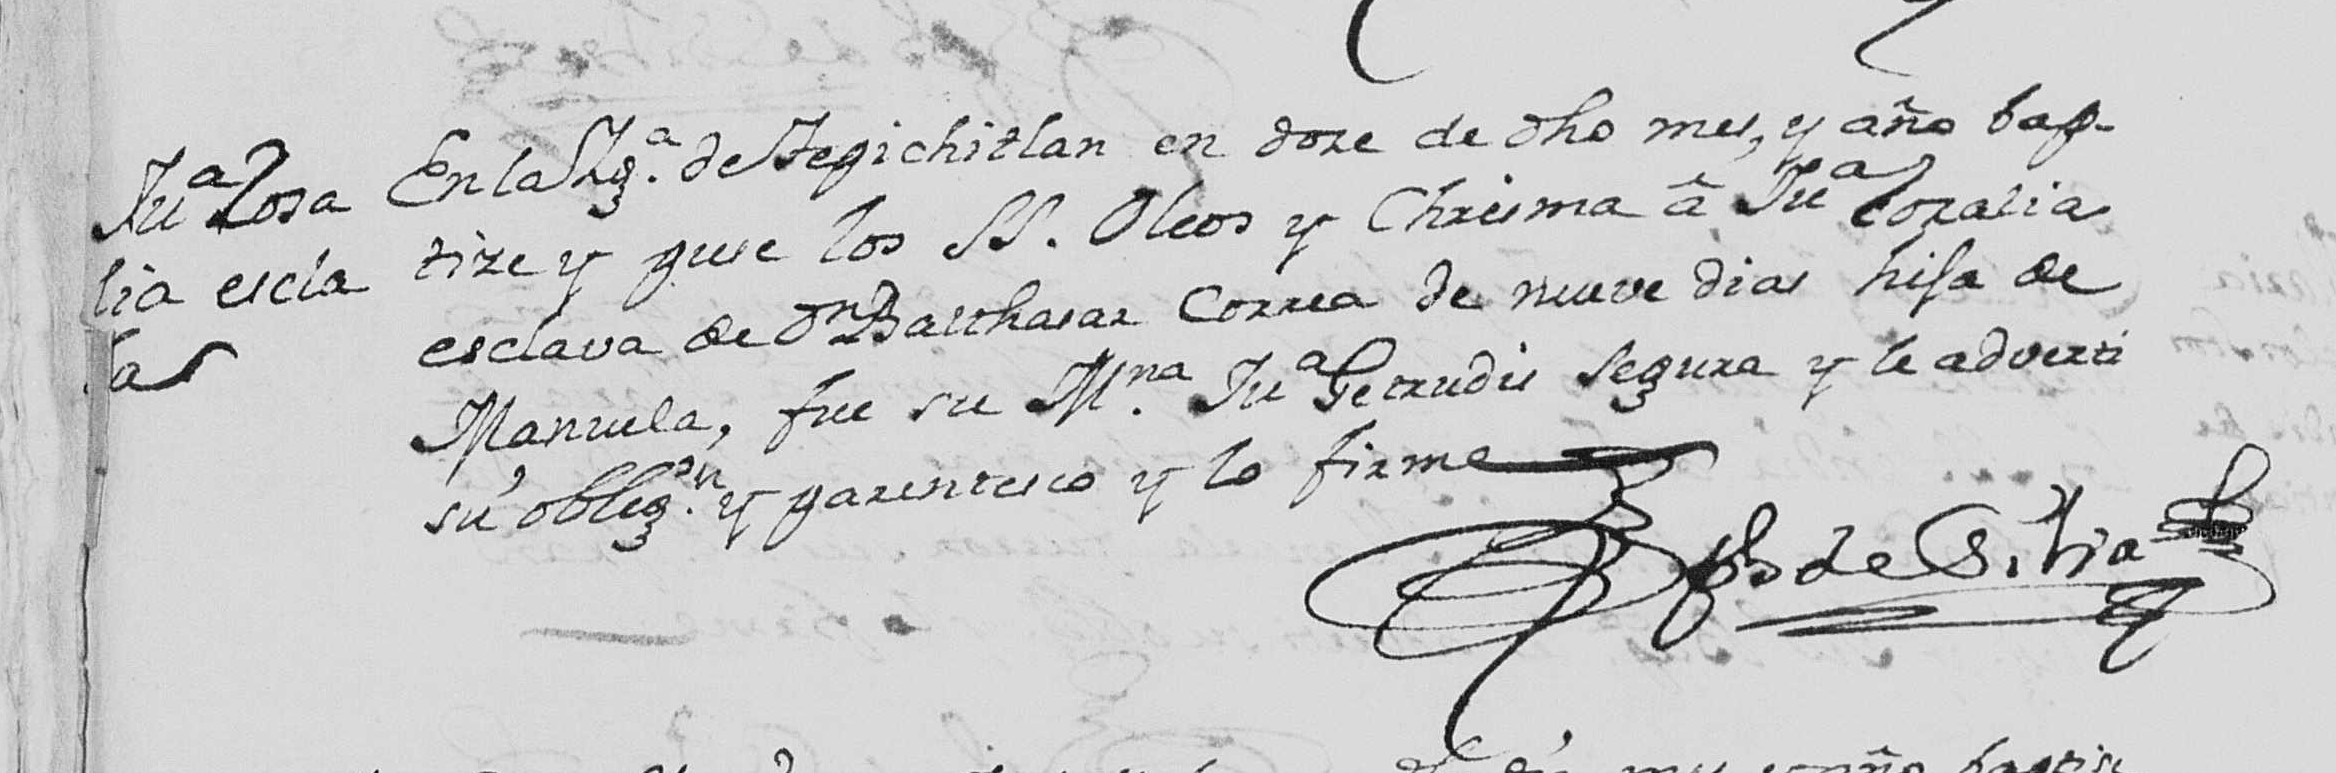 Ju.ª Rosa
lia escla
va
En la Yg.ª de Tepichitlan en doze de dho mes, y año bap-
tize y puse los SS. Oleos y Chrisma â Ju.ª Rozalia
esclava de Dn Balthasar Correa de nueve dias hija de
Manuela, fue su M.na Ju.ª Getrudis Segura y le adverti
su oblig.on y parentesco y lo firme
de Silvia